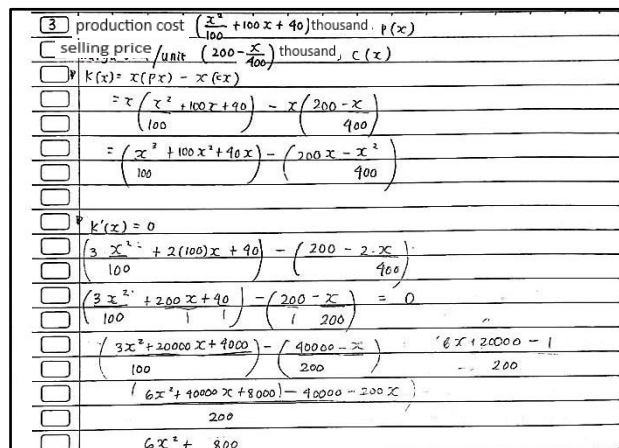 3 production cost (x²/100 + 100x + 40) thousand, p(x)
selling price/unit (200 - x/400) thousand, c(x)
K(x) = x(px) - x(cx)
= x(x²/100 + 100x + 40) - x(200 - x/400)
= (x³/100 + 100x² + 40x) - (200x - x²/400)
K'(x) = 0
(3x²/100 + 2(100)x + 40) - (200 - 2·x/400)
(3x²/100 + 200x/1 + 40/1) - (200/1 - x/200) = 0
(3x² + 20000x + 4000/100) - (40000 - x/200) 6x + 20000 - 1/200
(6x² + 40000x + 8000) - 40000 - 200x)/200
6x² + 800